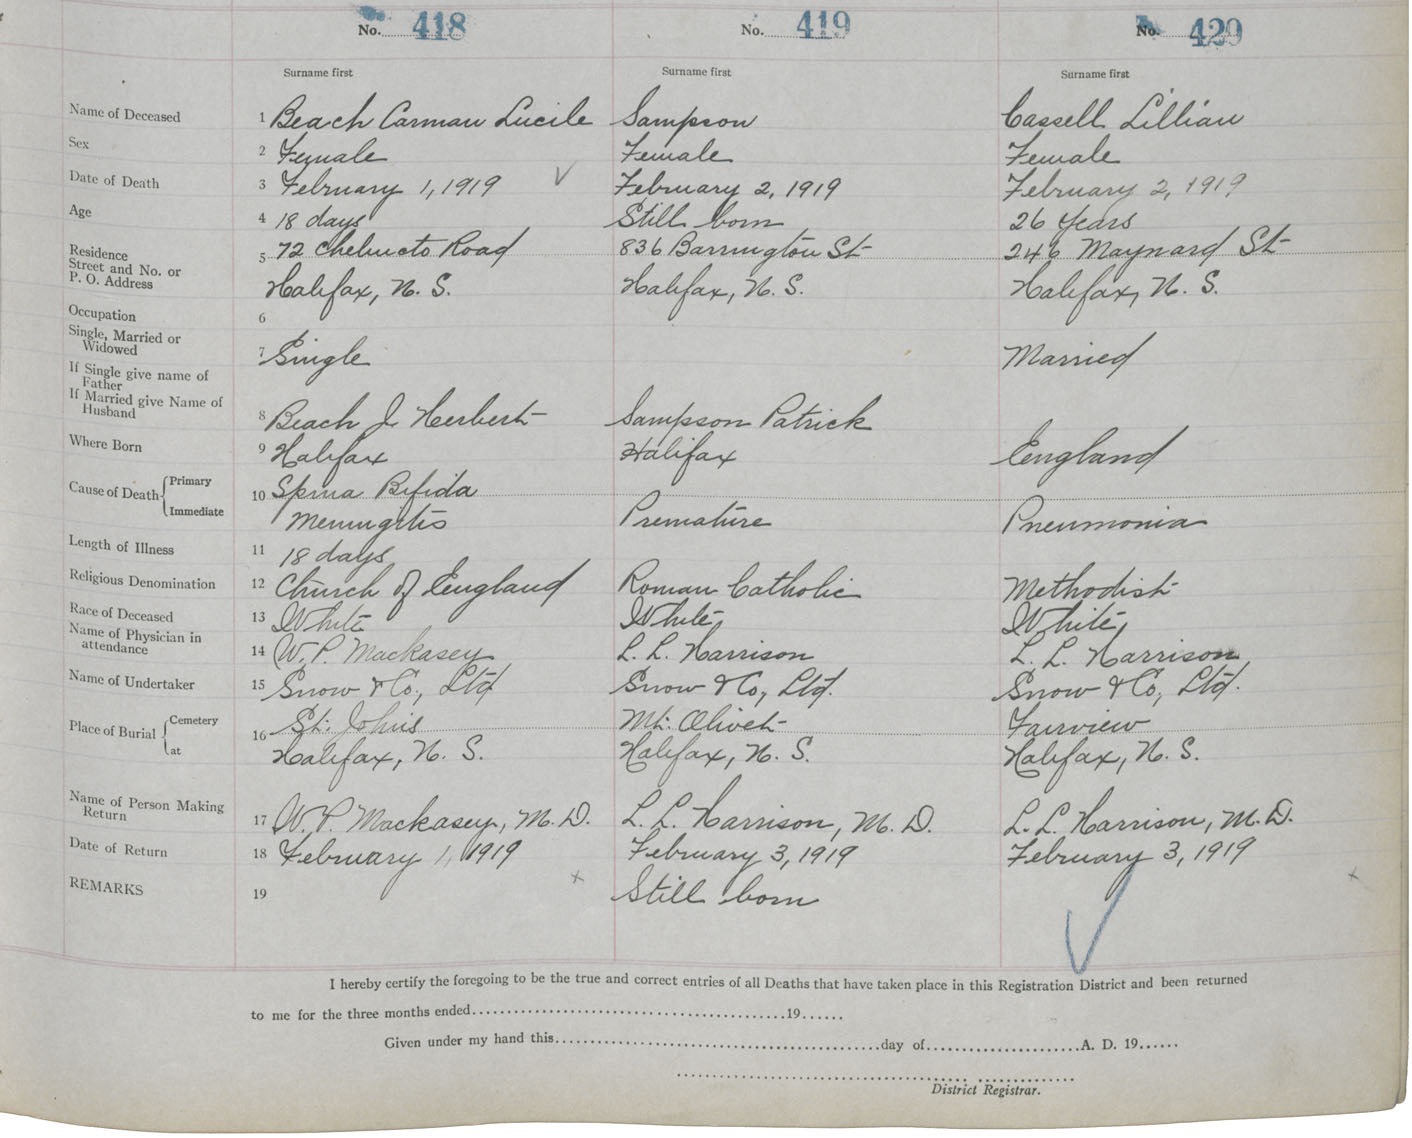 No. 418 No. 419 No. 420
Surname first Surname first Surname first
Name of Deceased 1 Beach Carman Lucile Sampson Cassell Lillian
Sex 2 Female Female Female
Date of Death 3 February 1, 1919 February 2, 1919 February 2, 1919
Age 4 18 days Still born 26 years
Residence
Street and No. or
P. O. Address
5 72 Chebucto Road 836 Barrington St 246 Maynard St
Halifax, N. S. Halifax, N. S. Halifax, N. S.
Occupation 6
Single, Married or
Widowed
7 Single Married
If Single give name of
Father
If Married give Name of
Husband
8 Beach J. Herbert Sampson Patrick
Where Born 9 Halifax Halifax England
Cause of Death Primary 10 Spina Bifida
Immediate Meningitis Premature Pneumonia
Length of Illness 11 18 days
Religious Denomination 12 Church of England Roman Catholic Methodist
Race of Deceased 13 White White White
Name of Physician in
attendance
14 W. P. Mackasey L. L. Harrison L. L. Harrison
Name of Undertaker 15 Snow & Co, Ltd Snow & Co, Ltd. Snow & Co, Ltd.
Place of Burial Cemetery 16 St. Johns Mt. Olivet Fairview
at Halifax, N. S. Halifax, N. S. Halifax, N. S.
Name of Person Making
Return
17 W. P. Mackasey, M. D. L. L. Harrison, M. D. L. L. Harrison, M. D.
Date of Return 18 February 1, 1919 February 3, 1919 February 3, 1919
REMARKS 19 Still born
I hereby certify the foregoing to be the true and correct entries of all Deaths that have taken place in this Registration District and been returned
to me for the three months ended 19
Given under my hand this day of A. D. 19
District Registrar.